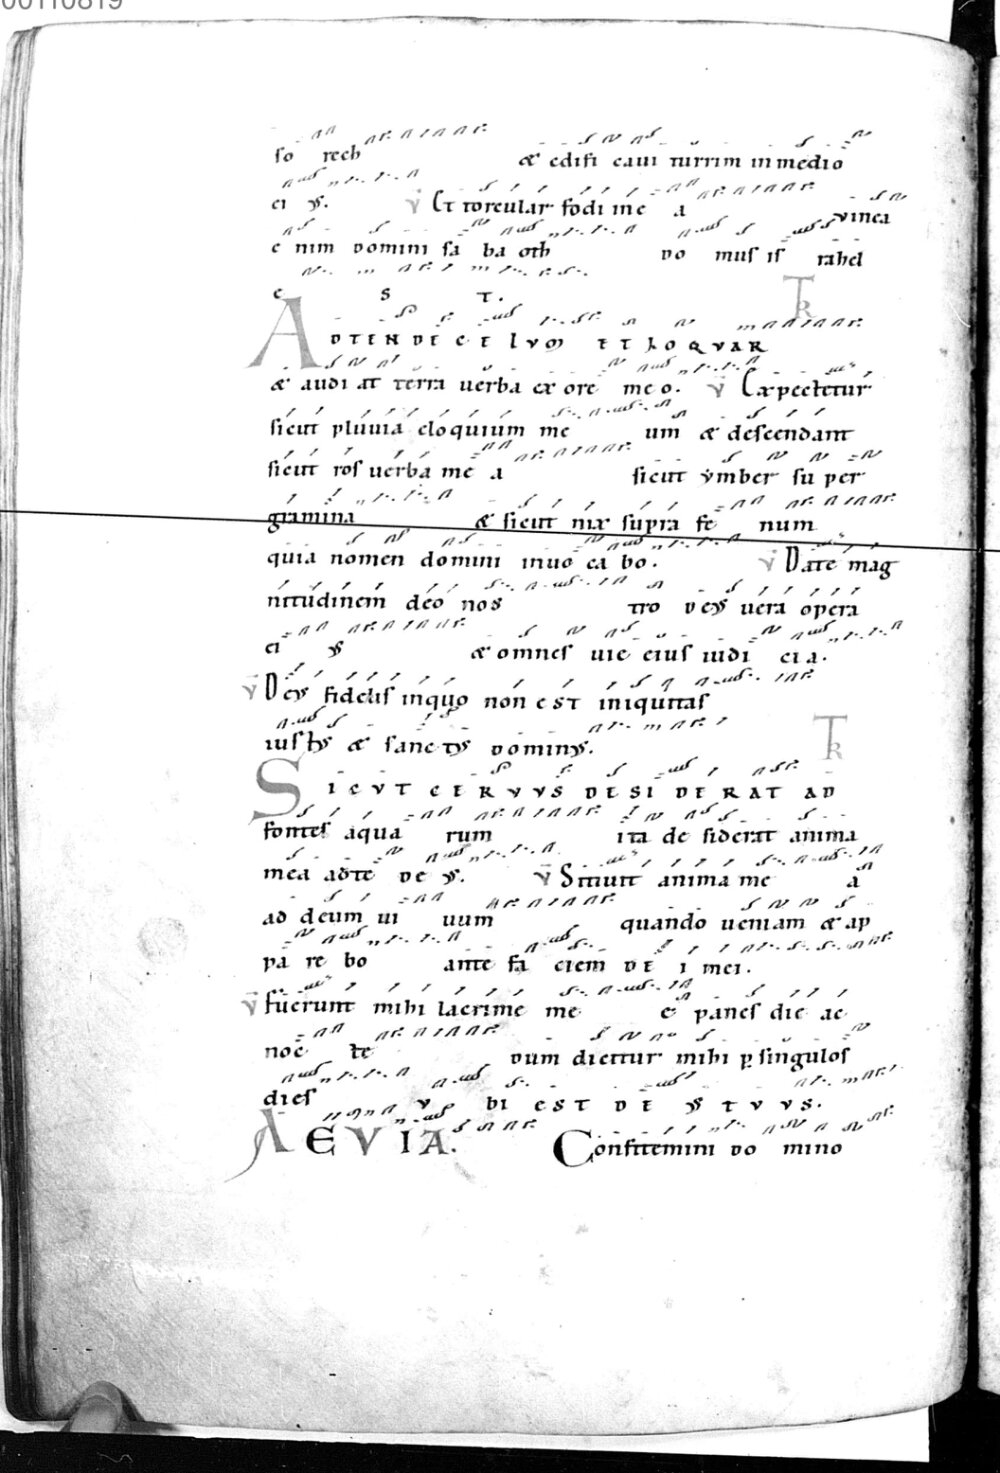 00110819
so rech & edifi caui turrim in medio
ei ȳs. V Et torcular fodi in e a vinea
e nim domini sa ba oth do mus is rahel
e s t. TR
ADTENDE CE LUM ET LOQUAR
& audi at terra uerba ex ore me o. V Expectetur
sicut pluuia eloquium me um & descendant
sicut ros uerba me a sicut ymber su per
gramina & sicut nix supra fe num
quia nomen domini inuo ca bo. V Date mag
nitudinem deo nos tro deus uera opera
ei us & omnes uie eius iudi cia.
V Deus fidelis in quo non est iniquitas
iustus & sanctus dominus.
TR
SICUT CERVUS DESIDERAT AD
fontes aqua rum ita de siderat anima
mea adte de us. V Sitiuit anima me a
ad deum ui uum quando ueniam & ap
pa re bo ante fa ciem de i mei.
V fuerunt mihi lacrime me e panes die ac
noc te dum dicitur mihi p singulos
dies v bi est de us tuus.
AEVIA. Confitemini do mino